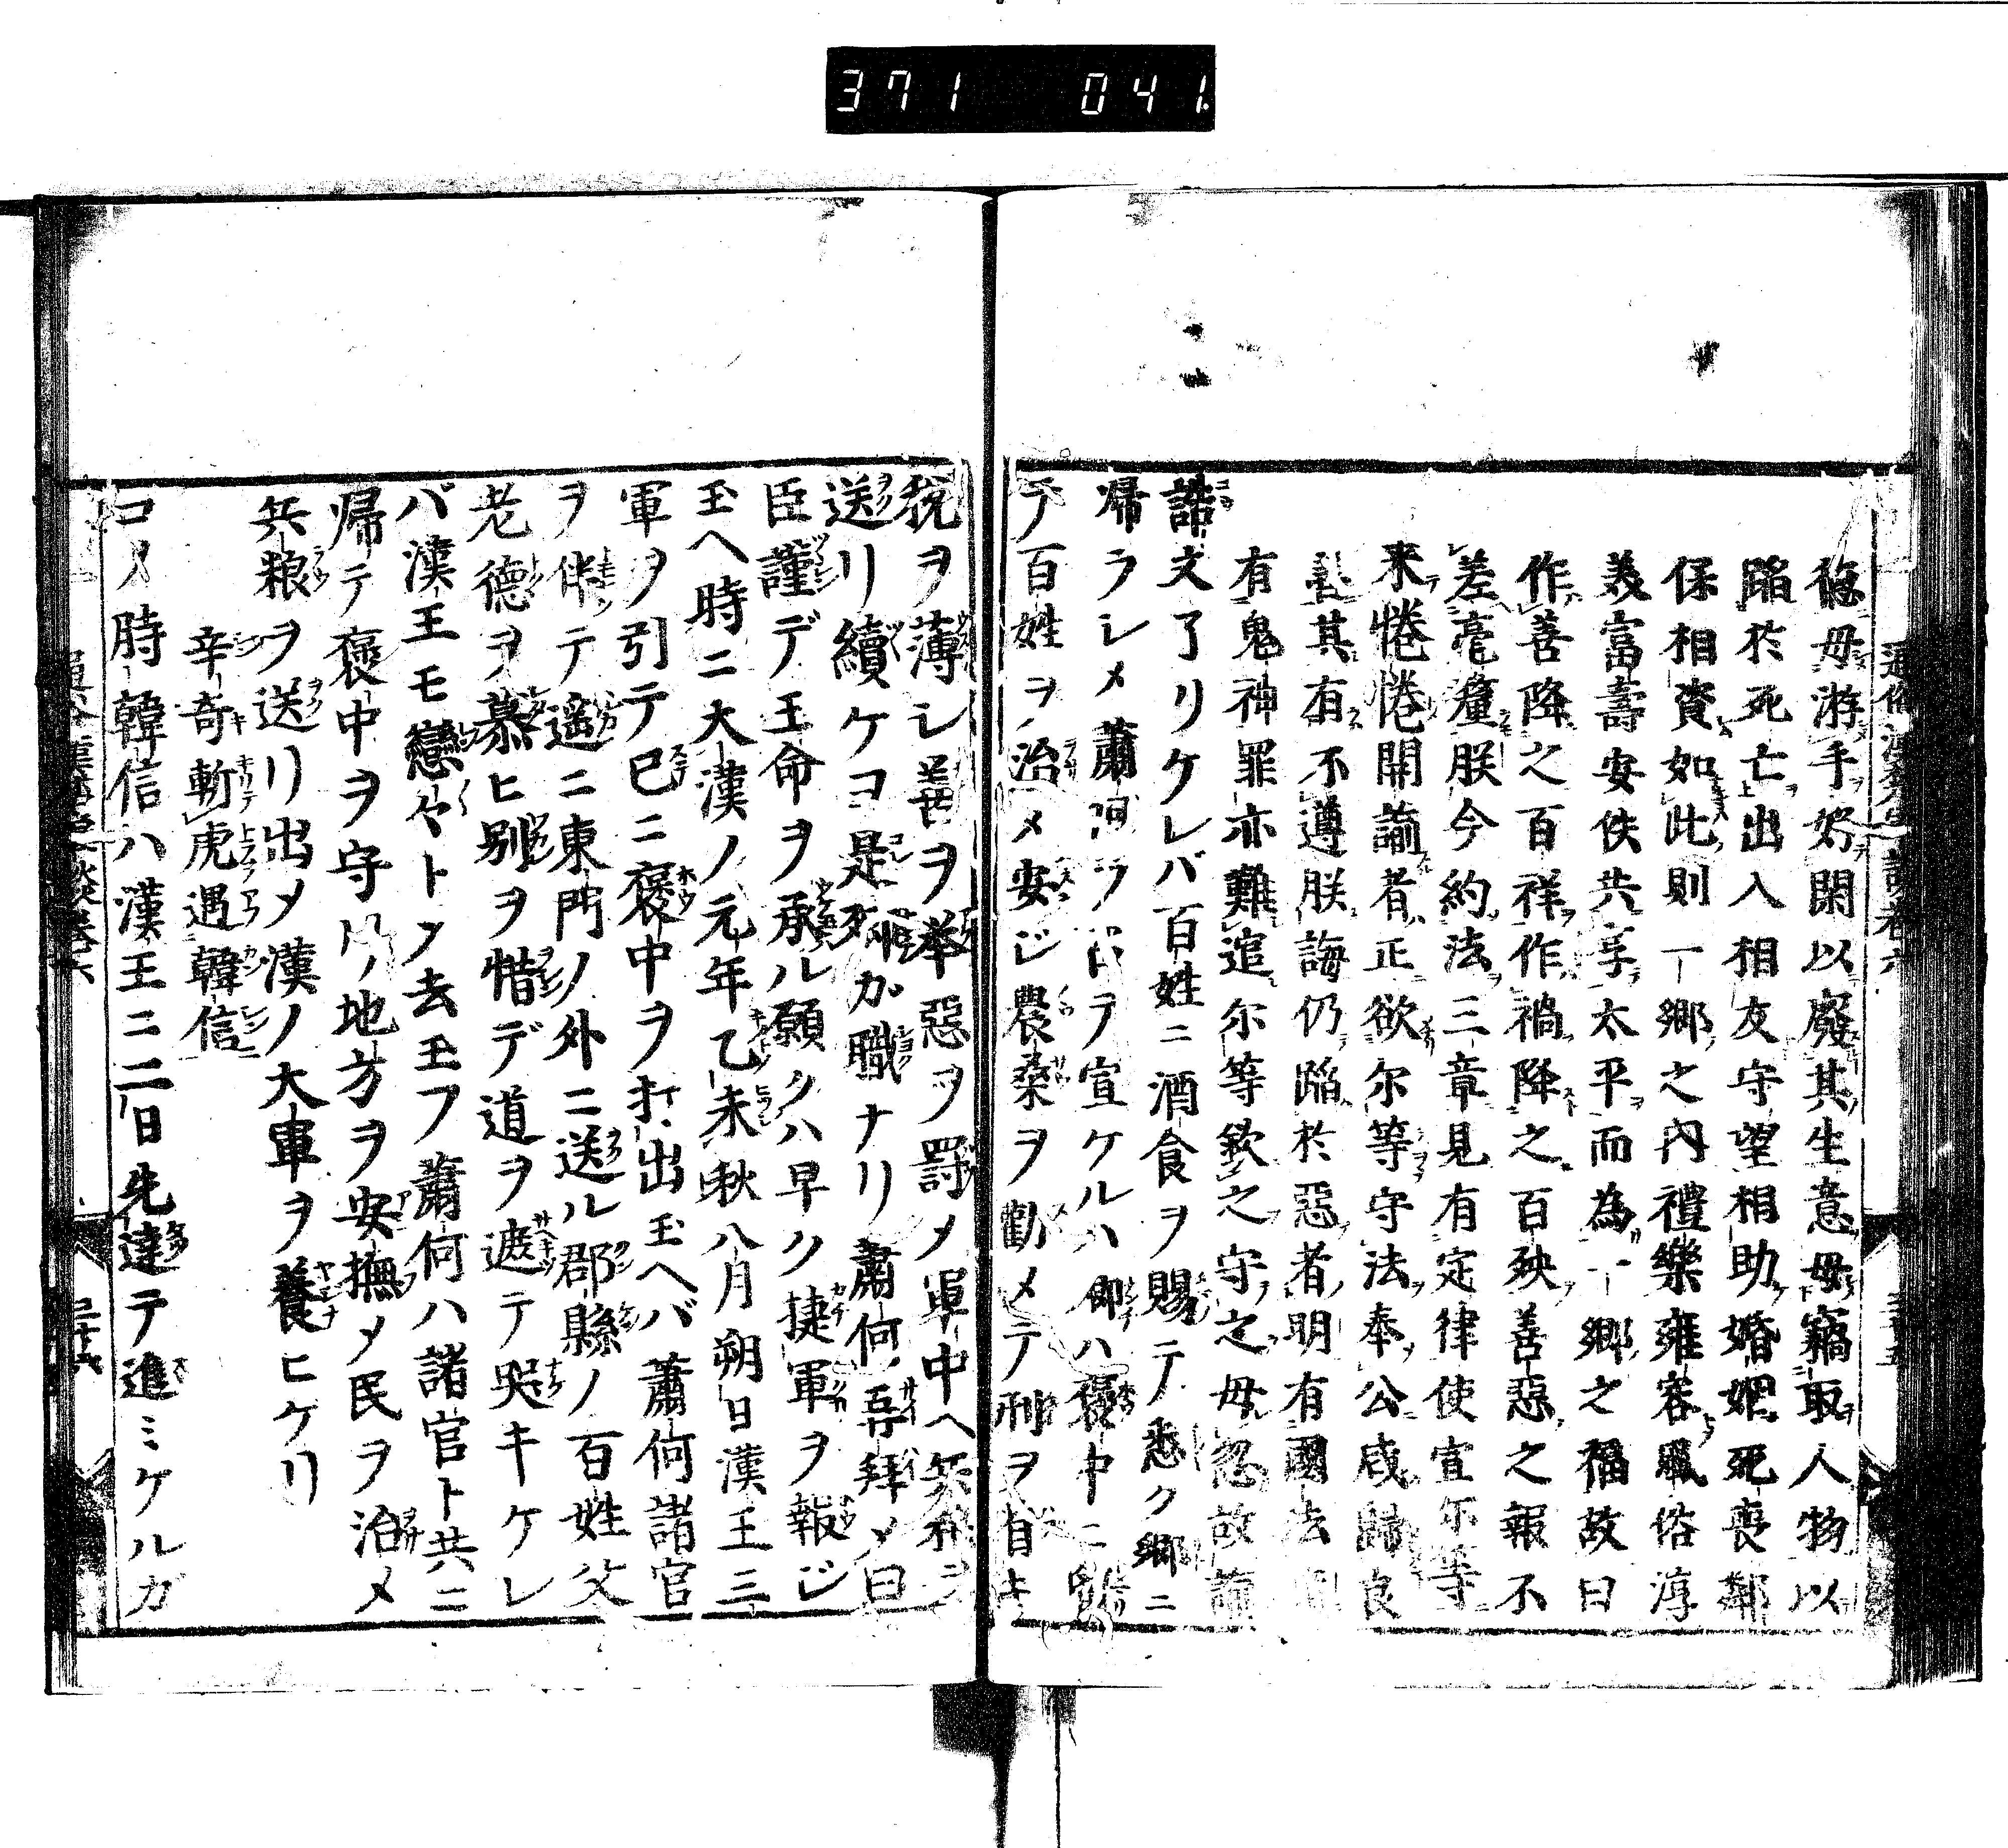 371 041
悔毋游手好閑以廢其生意毋竊取人物以
陷於死亡出入相友守望相助婚姻死喪鄰
保相資如此則一鄉之內禮樂雍容風俗淳
美富壽安佚共享太平而為一鄉之福故曰
作善降之百祥作禍降之百殃善惡之報不
差毫釐朕今約法三章見有定律使宣尓等
来惓惓開諭者正欲尓等守法奉公咸歸良
其有不遵朕誨仍陷於惡者明有國法
有鬼神罪亦難逭尓等欽之守之毋忽故諭
誥文了リケレバ百姓ニ酒食ヲ賜テ悉ク郷ニ
帰ラレメ蕭河ヲ テ宣ケルハ卿ハ褒中ニ
テ百姓ヲ治メ安ジ農桑ヲ勸メテ刑ヲ省キ
税ヲ薄シ善ヲ挙惡ヲ罸メ軍中ヘ兵粮ヲ
送リ續ケヨ是 カ職ナリ蕭何再拜メ曰
臣謹デ王命ヲ承ル願クハ早ク捷軍ヲ報ジ
玉ヘ時ニ大漢ノ元年乙未秋八月朔日漢王三
軍ヲ引テ已ニ褒中ヲ打出玉ヘバ蕭何諸官
ヲ伴テ遥ニ東門ノ外ニ送ル郡縣ノ百姓父
老德ヲ慕ヒ別ヲ惜デ道ヲ遮テ哭キケレ
バ漢王モ戀々トノ去玉フ蕭何ハ諸官ト共ニ
帰テ褒中ヲ守リ地方ヲ安撫メ民ヲ治メ
兵粮ヲ送リ出メ漢ノ大軍ヲ養ヒケリ
辛奇斬虎遇韓信
コノ時韓信ハ漢王ニ二日先達テ進ミケルカ